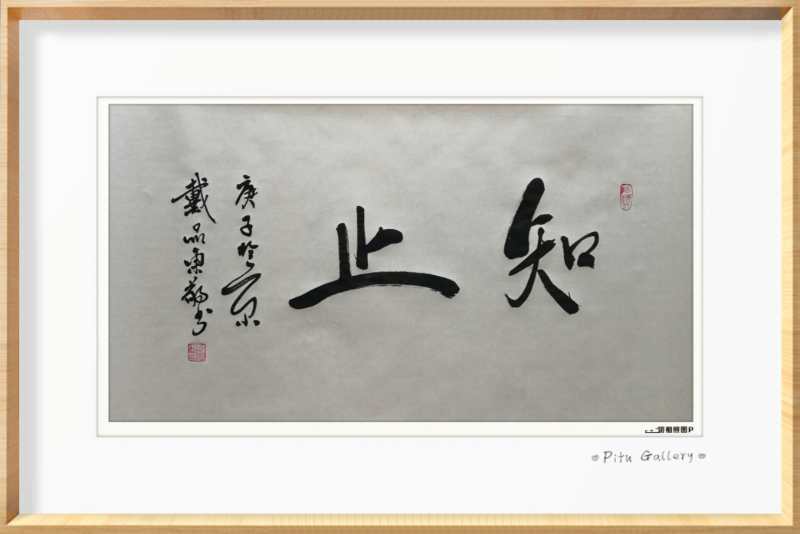 知止
庚子於京
戴品东敬书
Pitu Gallery